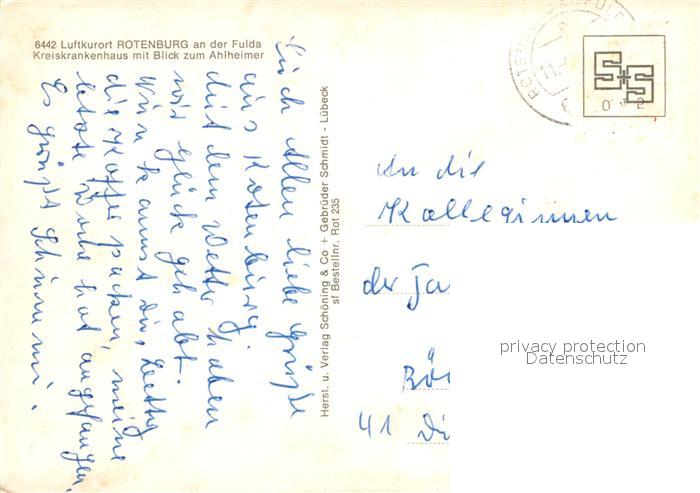 6442 Luftkurort ROTENBURG an der Fulda
Kreiskrankenhaus mit Blick zum Ahlheimer
Euch Allen liebe Grüße
aus Rotenburg.
Mit dem Wetter haben
wir Glück gehabt.
Nun kannst Du,
die Koffer packen, meine
letzte Woche hat angefangen.
Es grüßt
Herst. u. Verlag Schöning & Co + Gebrüder Schmidt - Lübeck
sf Bestellnr. Rot 235
An die
Kolleginnen
der
41
privacy protection
Datenschutz